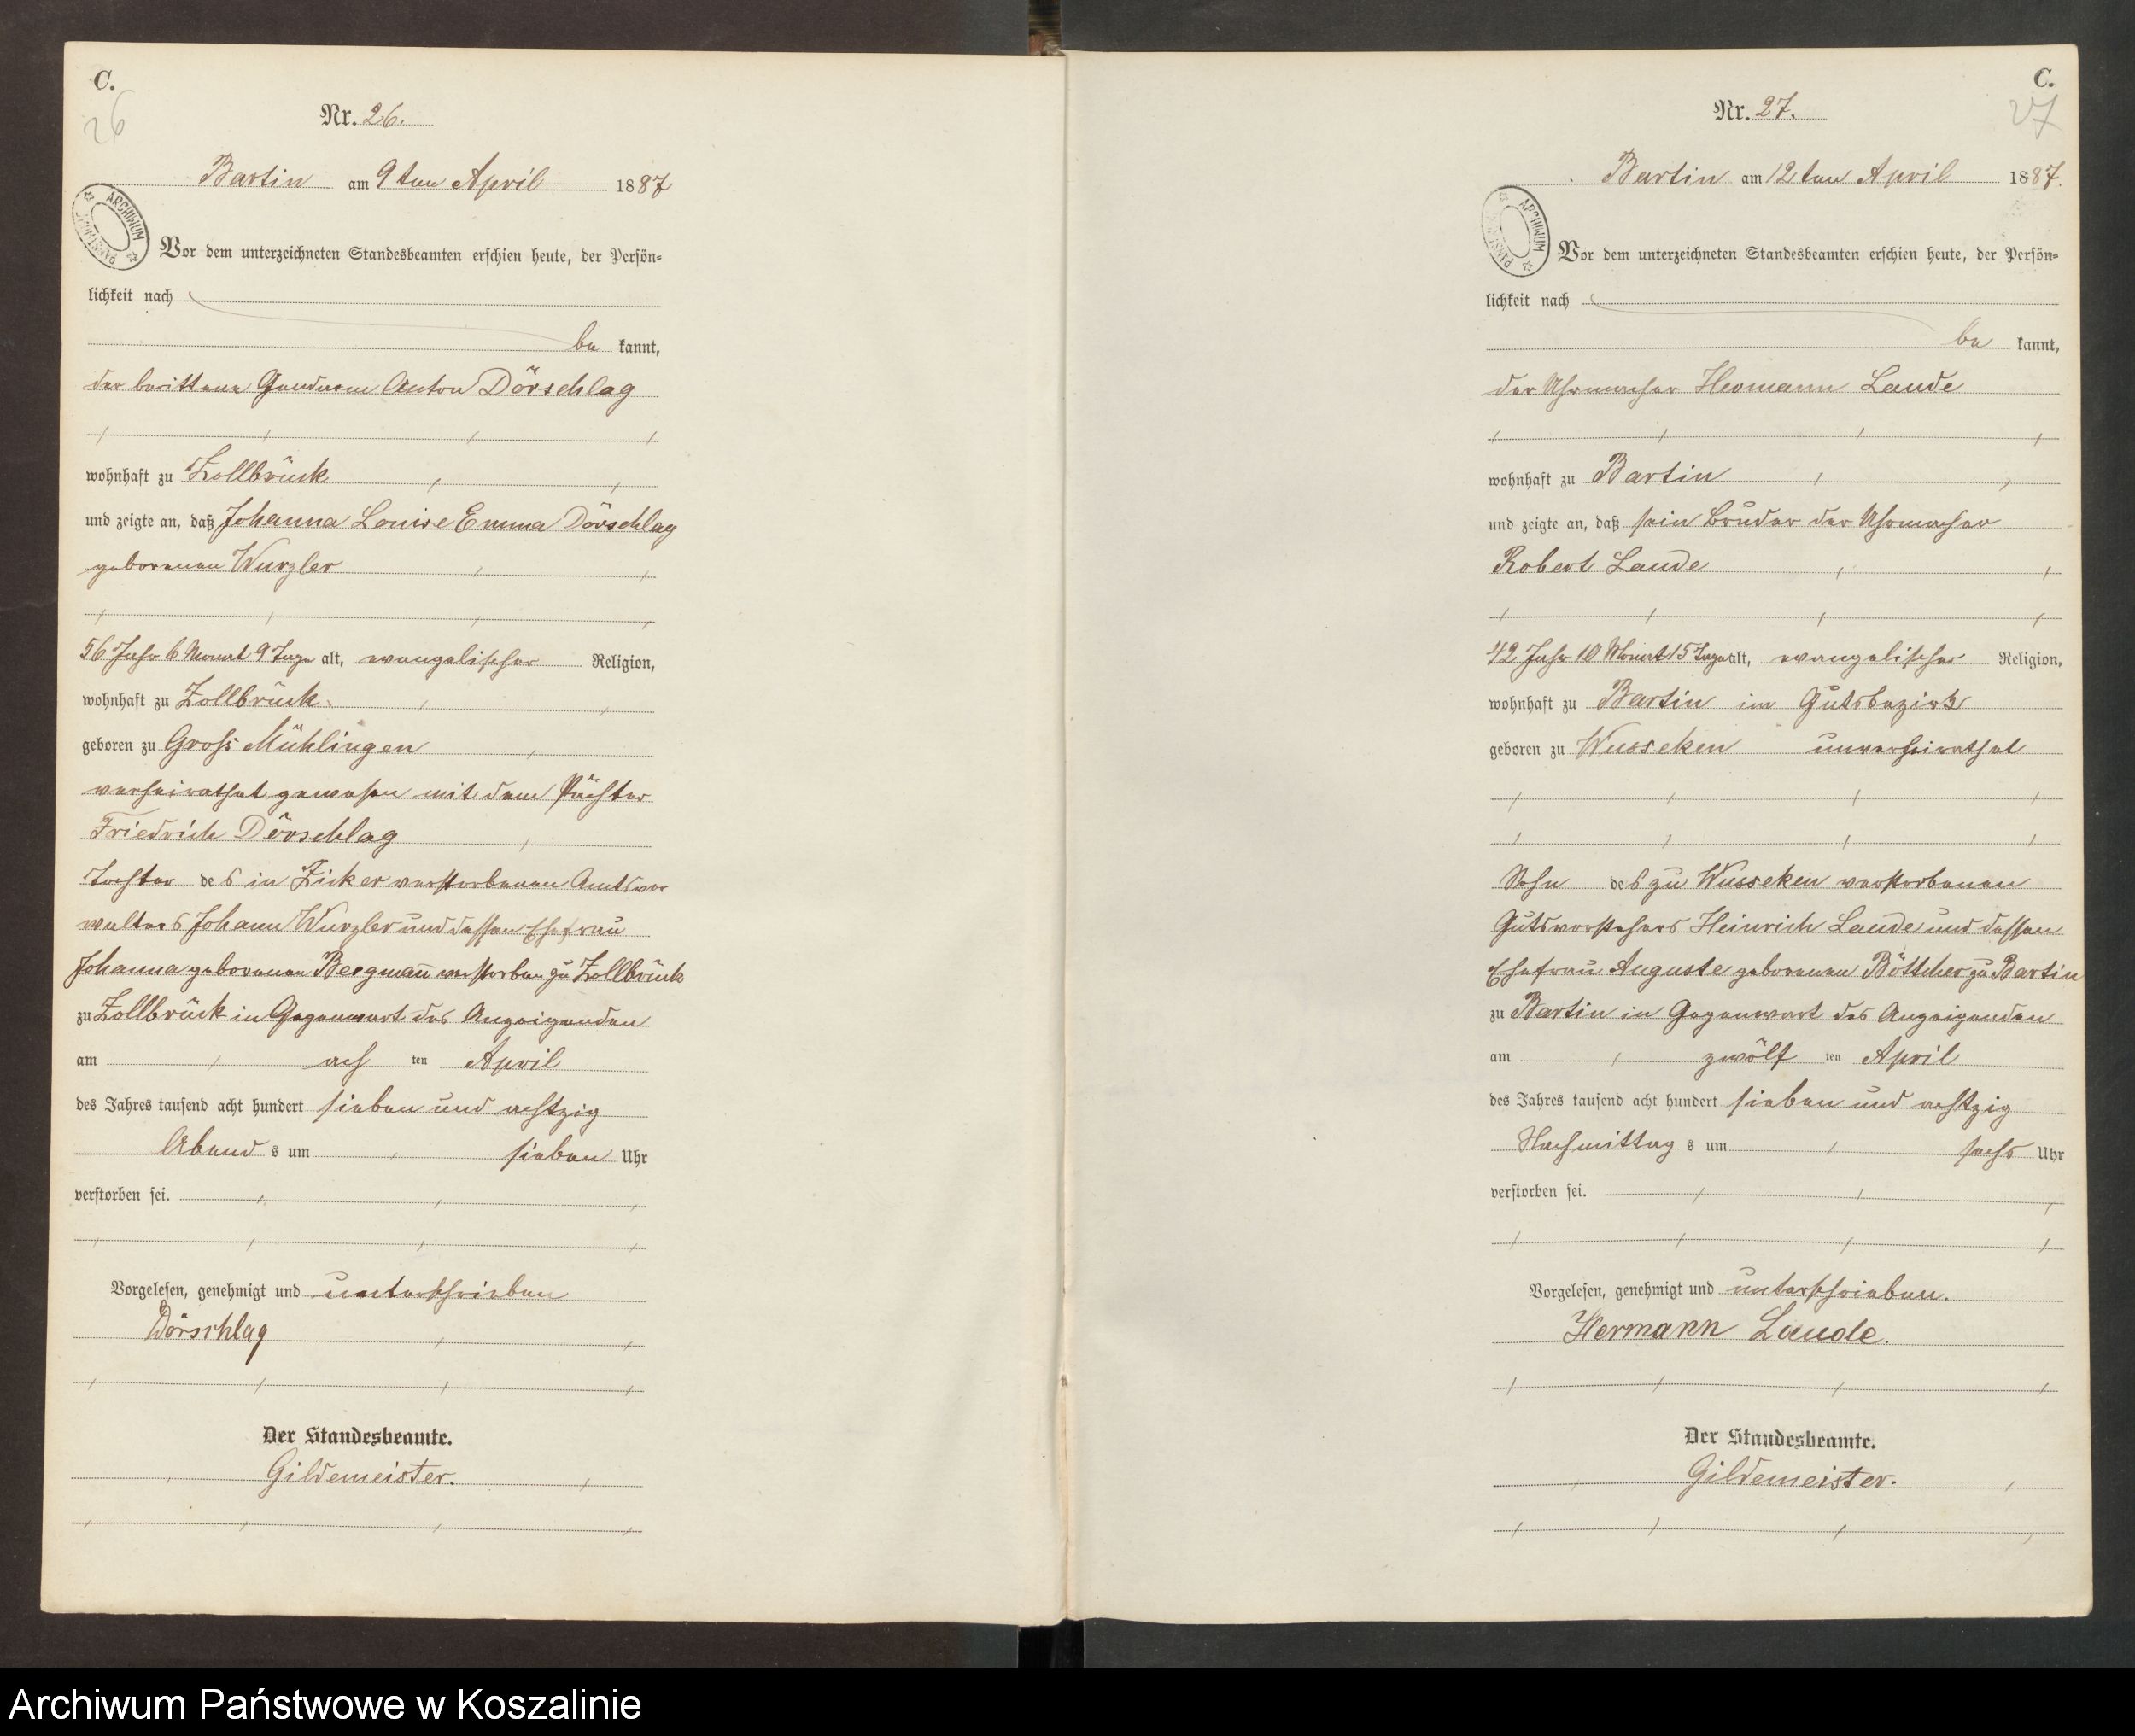 C.
26
Nr. 26.
Bartin am 9 ten April 1887
ARCHIWUM PAŃSTWOWE
Vor dem unterzeichneten Standesbeamten erschien heute, der Persön=
lichkeit nach
be kannt,
der berittene Gendarm Anton Dörschlag
wohnhaft zu Zollbrück
und zeigte an, daß Johanna Louise Emma Dörschlag
geborenen Wurzler
56 Jahr 6 Monat 9 Tage alt, evangelischer Religion,
wohnhaft zu Zollbrück
geboren zu Gross Mühlingen
verheirathet gewesen mit dem Pächter
Friedrich Dörschlag
Tochter des in Zicker verstorbenen Amtsver
walters Johann Wurzler und dessen Ehefrau
Johanna geborenen Bergmann̄ verstorben zu Zollbrück
zu Zollbrück in Gegenwart des Anzeigenden
am ach ten April
des Jahres tausend acht hundert sieben und achtzig
Abend s um sieben Uhr
verstorben sei.
Vorgelesen, genehmigt und unterschrieben
Dörschlag
Der Standesbeamte.
Gildemeister.
C.
27
Nr. 27.
Bartin am 12 ten April 1887.
ARCHIWUM PAŃSTWOWE
Vor dem unterzeichneten Standesbeamten erschien heute, der Persön=
lichkeit nach
be kannt,
der Uhrmacher Hermann Laude
wohnhaft zu Bartin
und zeigte an, daß sein Bruder der Uhrmacher
Robert Laude
42 Jahr 10 Monat 15 Tage alt, evangelischer Religion,
wohnhaft zu Bartin im Gutsbezirk
geboren zu Wusseken unverheirathet
Sohn des zu Wusseken verstorbenen
Gutsvorstehers Heinrich Laude und dessen
Ehefrau Auguste geborenen Böttcher zu Bartin
zu Bartin in Gegenwart des Anzeigenden
am zwölf ten April
des Jahres tausend acht hundert sieben und achtzig
Nachmittag s um sechs Uhr
verstorben sei.
Vorgelesen, genehmigt und unterschrieben.
Hermann Laude.
Der Standesbeamte.
Gildemeister.
Archiwum Państwowe w Koszalinie